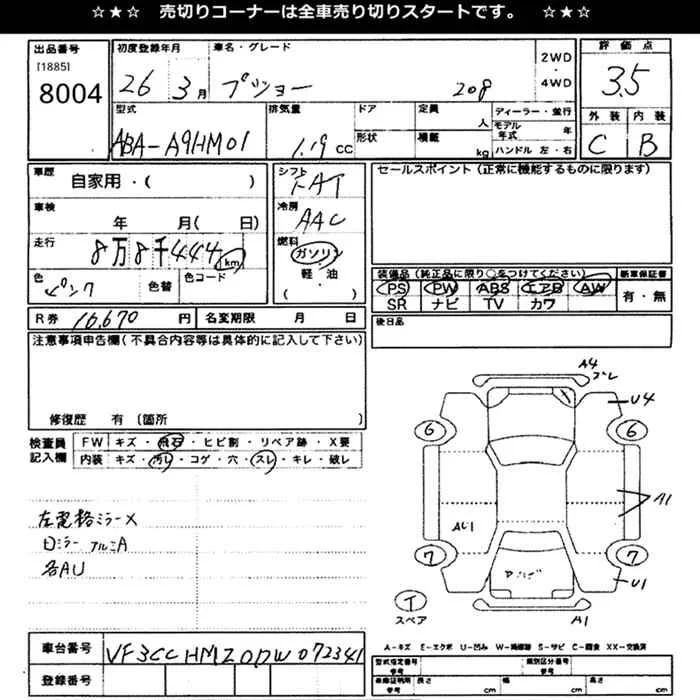 ☆★☆ 売切りコーナーは全車売り切りスタートです。 ☆★☆
出品番号 初度登録年月 車名・グレード 2WD・4WD 評価点
[1885]
8004 26 3月 プジョー 208 3.5
型式 排気量 ドア 定員 人 ディーラー・並行
外装 内装
ABA-A9HM01 1.19 CC 形状 積載 kg モデル年式 年
ハンドル 左・右 C B
車歴 自家用・( ) シフト FAT セールスポイント(正常に機能するものに限ります)
車検 年 月( 日) 冷房 AAC
走行 8万8千444km 燃料 ガソリン
軽・油
( )
色 ピンク 色替 色コード
装備品(純正品に限り○をつけてください) 新車保証書
PS PW ABS エアB AW 有・無
SR ナビ TV カワ
R券 10,670円 名変期限 月 日 後日品
注意事項申告欄(不具合内容等は具体的に記入して下さい)
修復歴 有(箇所 )
検査員記入欄 FW キズ・飛石・ヒビ割・リペア跡・X要
内装 キズ・汚レ・コゲ・穴・スレ・キレ・破レ
左電格ミラーX
ロミラー アルミA
各AU
A4
U4
6 6
A1
AU1
7 7
U1
T
スペア
A1
車台番号 VF3CCHMZ0DW072341
登録番号
A-キズ E-エクボ U-凹み W-補修跡 S-サビ C-腐食 XX-交換済
型式指定番号 参考 類別区分番号 参考
車庫証明用 参考 長さ cm 幅 cm 高さ cm